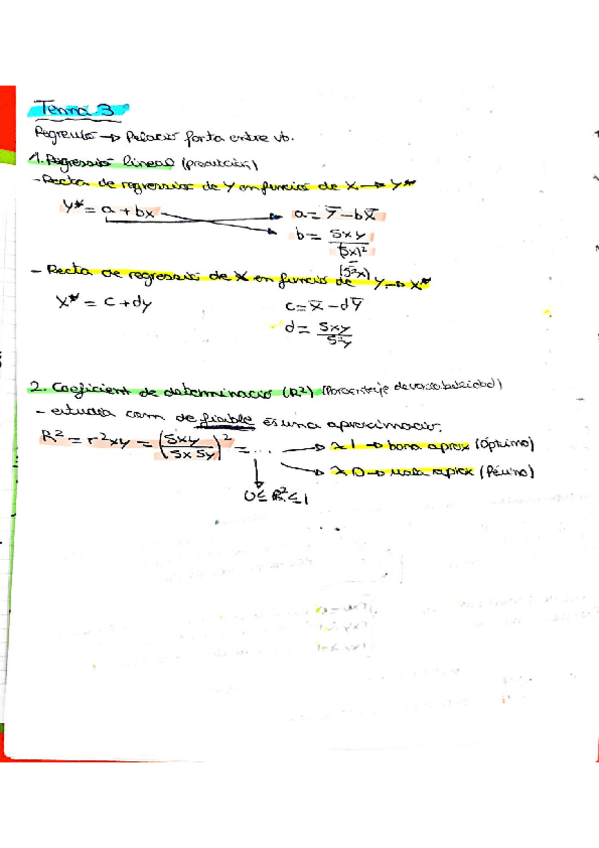 Tema 3
Regressió → Relació forta entre vb.
1. Regressió lineal (predicción)
- Recta de regressió de Y en funció de X → Y*
Y* = a + bx
a = Y̅ - bX̅
b = Sxy / (Sx)²
(S²x)
- Recta de regressió de X en funció de Y → X*
X* = c + dy
c = X̅ - dY̅
d = Sxy / S²y
2. Coeficient de determinació (R²) (Porcentaje de variabilidad)
- estudia com de fiable és una aproximació.
R² = r²xy = (Sxy / Sx Sy)² = ... → ≈ 1 → bona aprox (Óptimo)
→ ≈ 0 → mala aprox (Pésimo)
0 ≤ R² ≤ 1